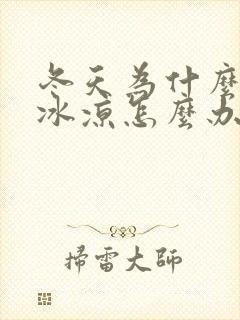 冬天為什麼
冰涼怎麼办
掃雷大師